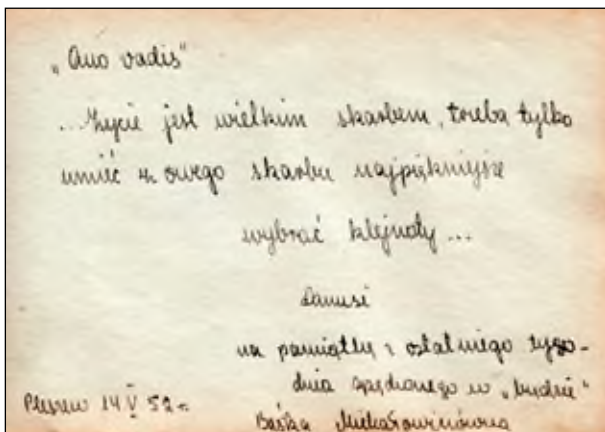 „Quo vadis”
...Życie jest wielkim skarbem, trzeba tylko
umieć z owego skarbu najpiękniejsze
wybrać klejnoty...
Danusi
na pamiątkę z ostatniego tygo-
dnia spędzonego w „budzie”
Pleszew 14 V 52 r. Baśka